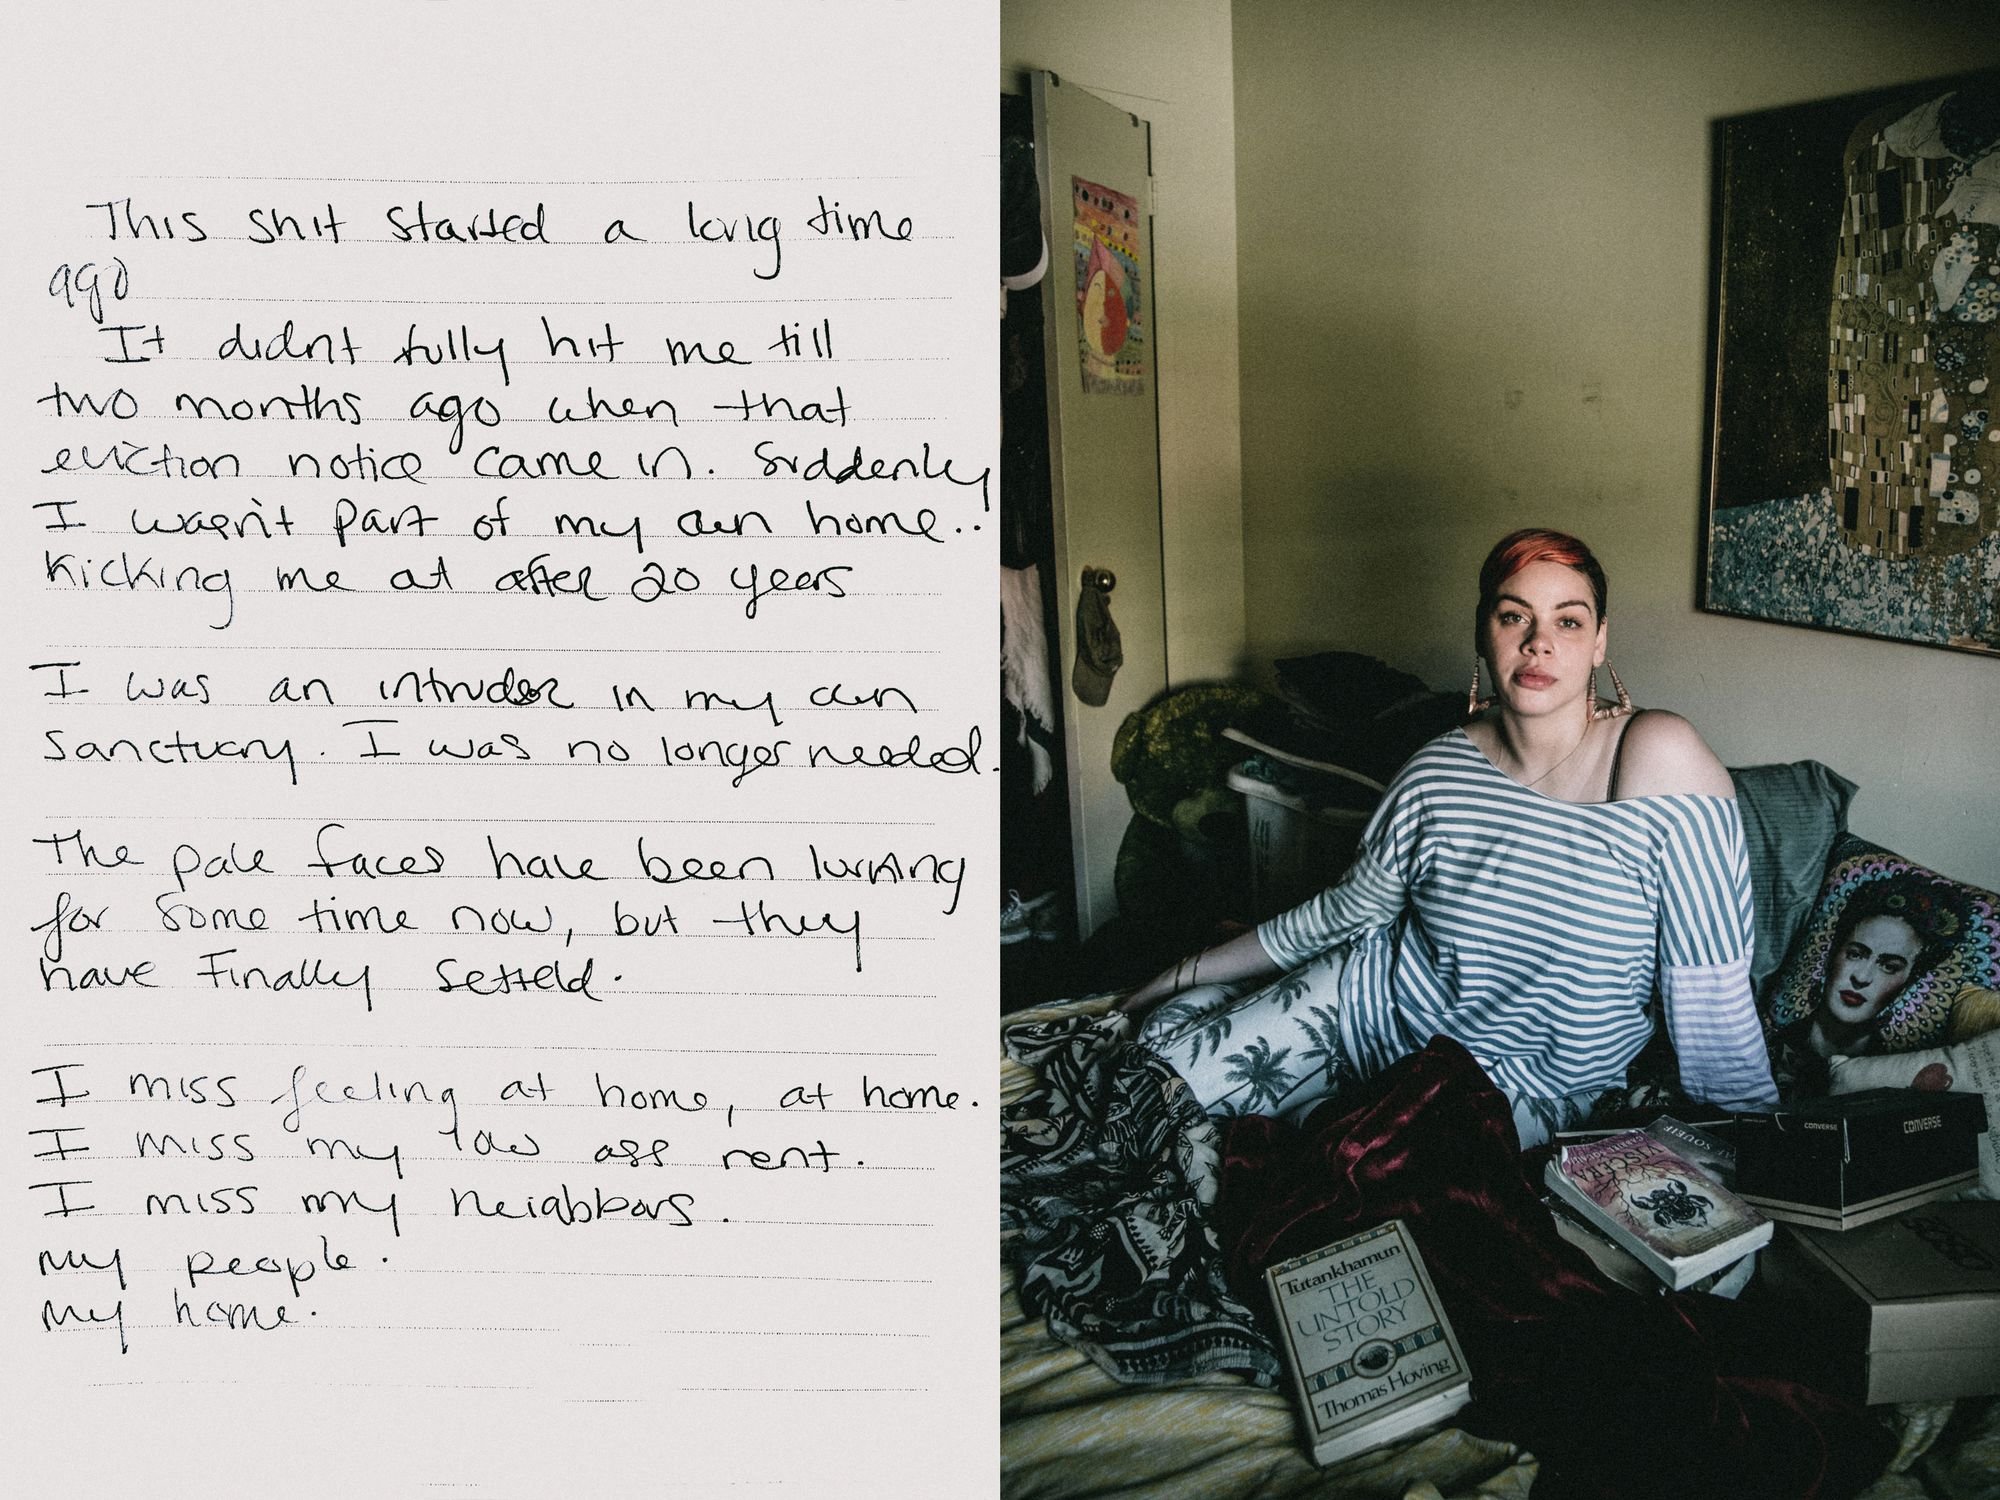 This shit started a long time
ago
It didnt fully hit me till
two months ago when that
eviction notice came in. Suddenly
I wasn't part of my own home..
Kicking me out after 20 years
I was an intruder in my own
sanctuary. I was no longer needed.
The pale faces have been lurking
for some time now, but they
have Finally setteld.
I miss feeling at home, at home.
I miss my low ass rent.
I miss my neiabbors.
my people.
my home.
CONVERSE
CONVERSE
SOUEIF
VISCERA
Tutankhamun
THE
UNTOLD
STORY
Thomas Hoving